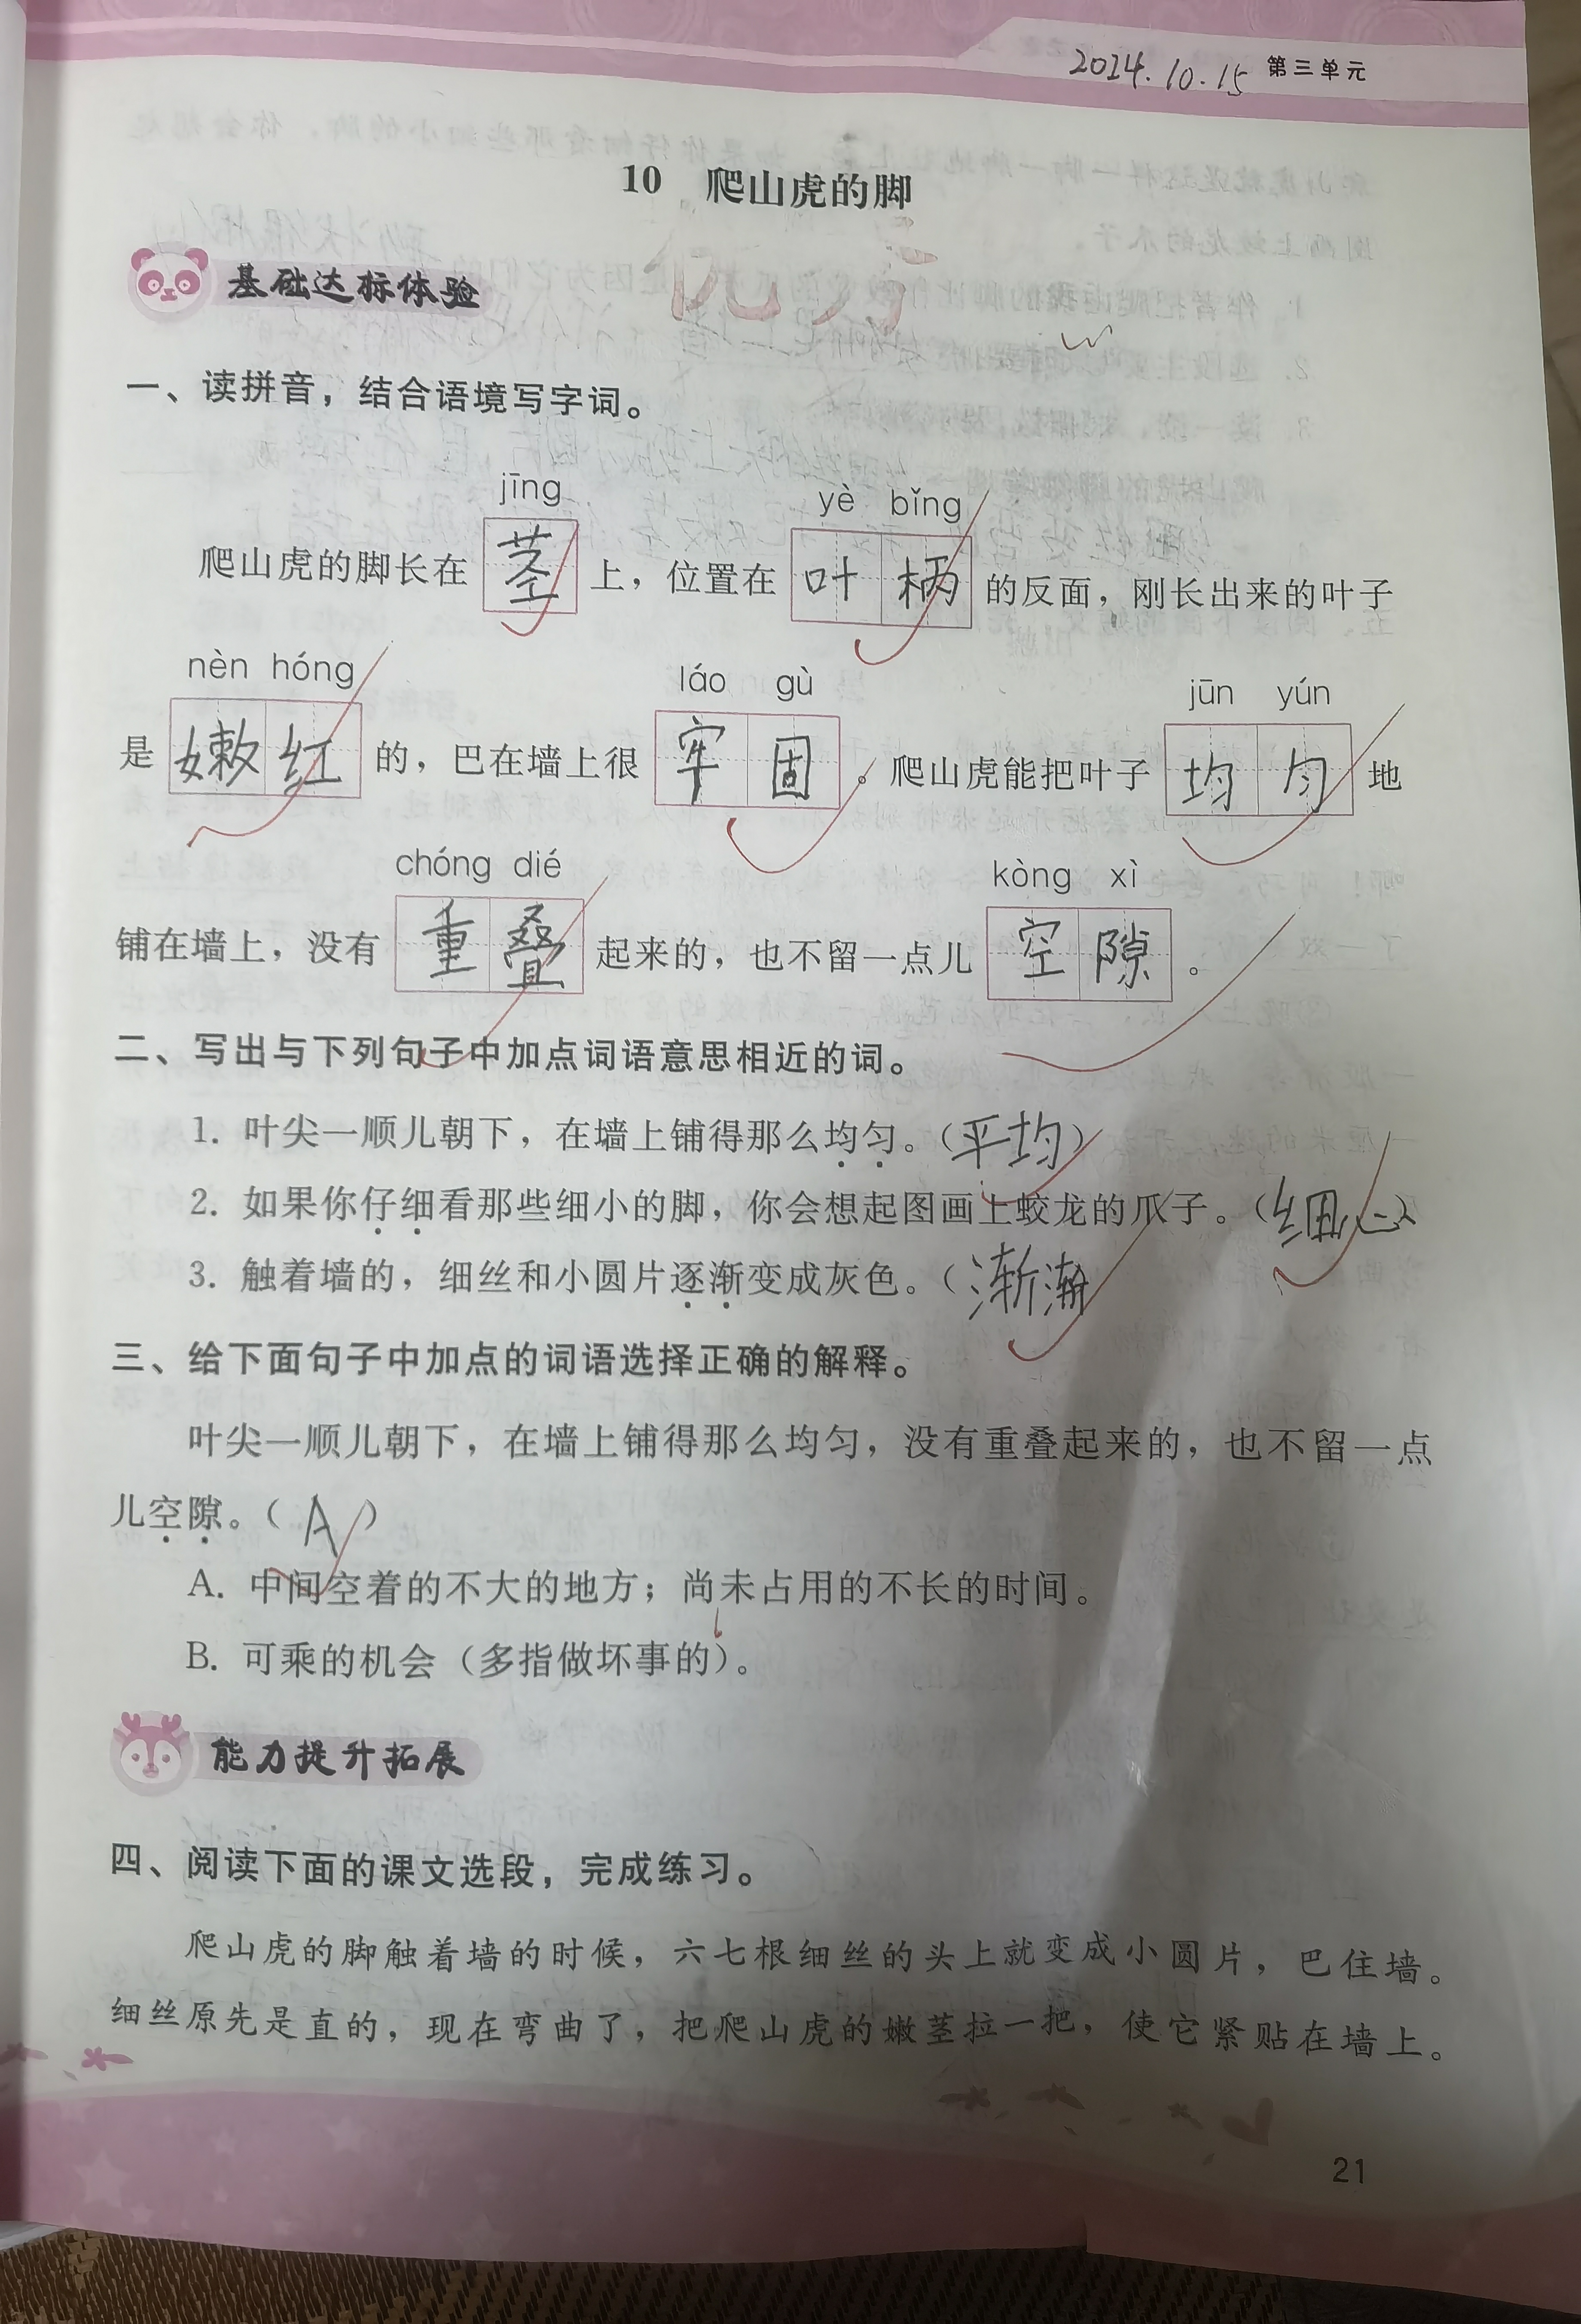 2024.10.15 第三单元
10 爬山虎的脚
基础达标体验
一、读拼音，结合语境写字词。
jīng yè bǐng
爬山虎的脚长在 茎 上，位置在 叶柄 的反面，刚长出来的叶子
nèn hóng láo gù jūn yún
是 嫩红 的，巴在墙上很 牢固 。爬山虎能把叶子 均匀 地
chóng dié kòng xì
铺在墙上，没有 重叠 起来的，也不留一点儿 空隙 。
二、写出与下列句子中加点词语意思相近的词。
1. 叶尖一顺儿朝下，在墙上铺得那么均匀。（平均）
2. 如果你仔细看那些细小的脚，你会想起图画上蛟龙的爪子。（细心）
3. 触着墙的，细丝和小圆片逐渐变成灰色。（渐渐
三、给下面句子中加点的词语选择正确的解释。
叶尖一顺儿朝下，在墙上铺得那么均匀，没有重叠起来的，也不留一点
儿空隙。（ A ）
A. 中间空着的不大的地方；尚未占用的不长的时间。
B. 可乘的机会（多指做坏事的）。
能力提升拓展
四、阅读下面的课文选段，完成练习。
爬山虎的脚触着墙的时候，六七根细丝的头上就变成小圆片，巴住墙。
细丝原先是直的，现在弯曲了，把爬山虎的嫩茎拉一把，使它紧贴在墙上。
21